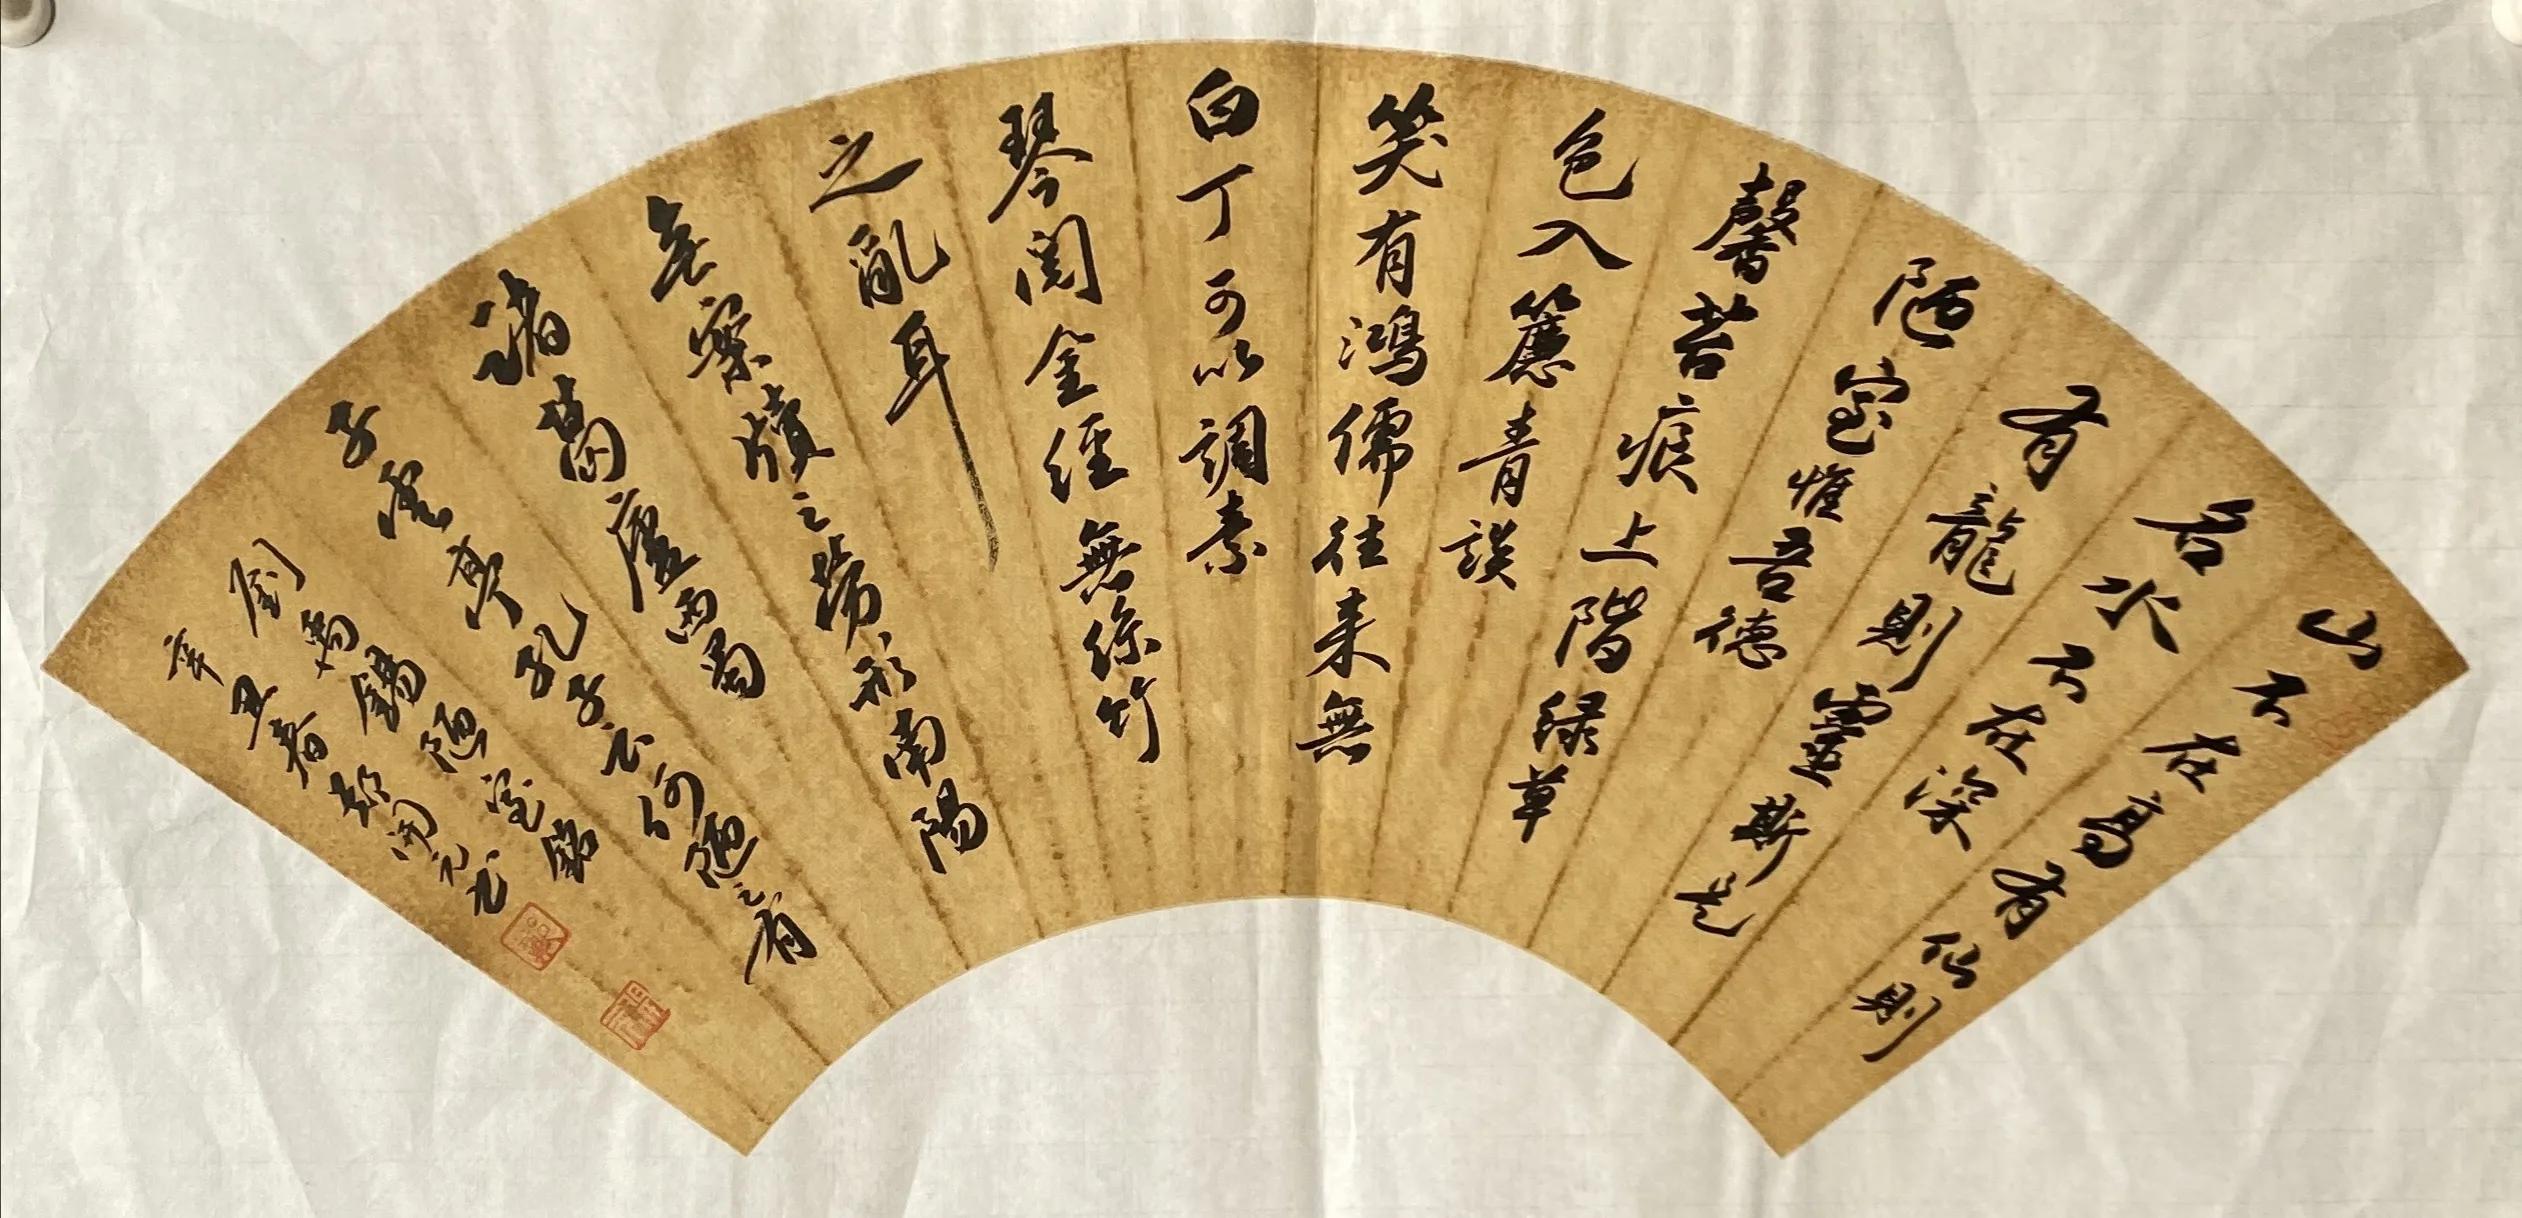 山不在高有仙則
名水不在深
有龍則靈斯是
陋室惟吾德
馨苔痕上階緑草
色入簾青談
笑有鴻儒往来無
白丁可以調素
琴閲金經無絲竹
之亂耳
無案牘之勞形南陽
諸葛廬西蜀
子雲亭孔子云何陋之有
劉禹錫陋室銘
辛丑春